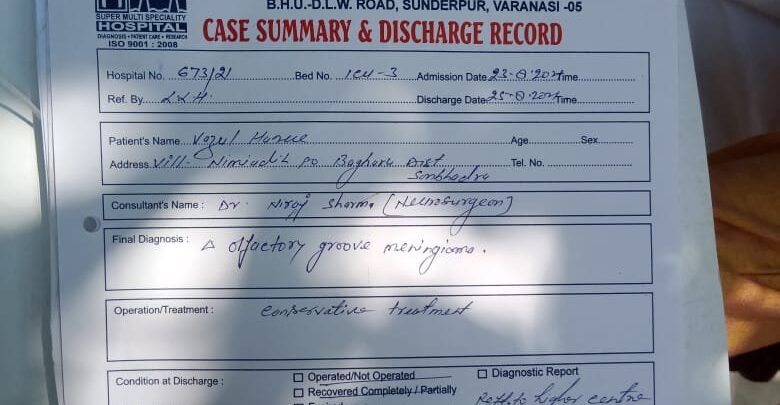 B.H.U.-D.L.W. ROAD, SUNDERPUR, VARANASI -05
SUPER MULTI SPECIALITY
HOSPITAL
DIAGNOSIS • PATIENT CARE • RESEARCH
ISO 9001 : 2008
CASE SUMMARY & DISCHARGE RECORD
Hospital No. 673/21 Bed No. ICU-3 Admission Date 23- Time
Ref. By Discharge Date 25- Time
Patient's Name Age Sex
Address Vill- PO Dist Tel. No.
Sonbhadra
Consultant's Name : Dr. Niraj Sharma (Neurosurgeon)
Final Diagnosis : olfactory groove meningioma.
Operation/Treatment : conservative treatment
Condition at Discharge : Operated/Not Operated Diagnostic Report
Recovered Completely / Partially to higher centre